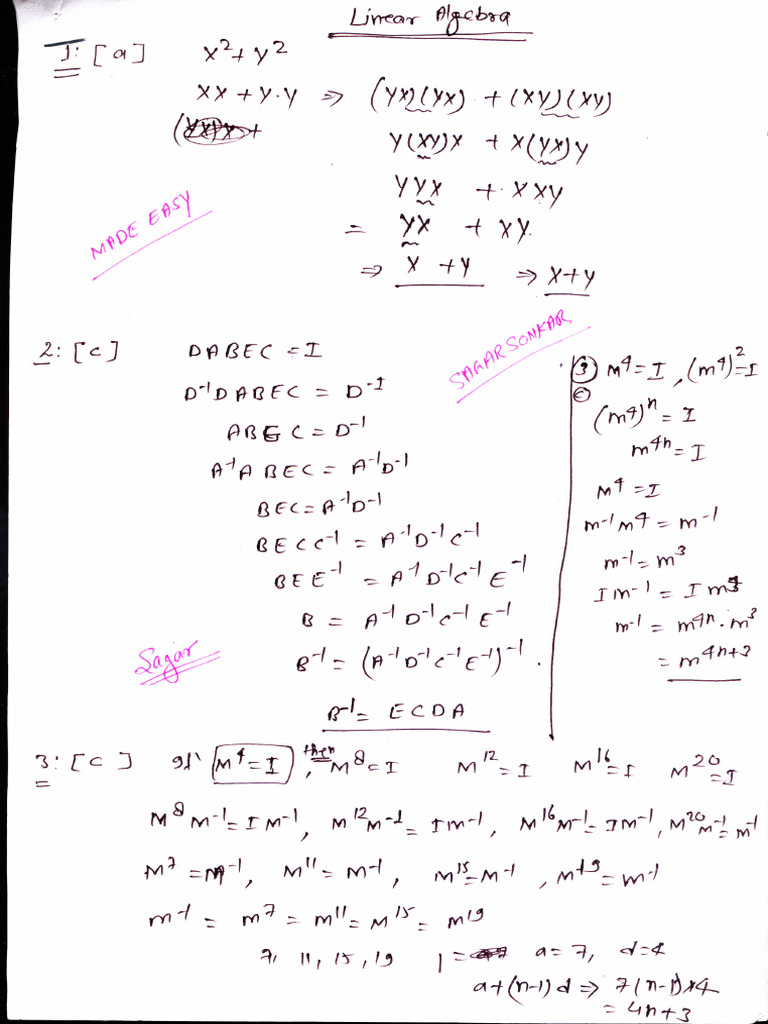 Linear Algebra
1: [a] X² + Y²
XX + Y·Y ⇒ (YX)(YX) + (XY)(XY)
Y(XY)X + X(YX)Y
YYX + XXY
= YX + XY
⇒ X + Y ⇒ X+Y
MADE EASY
SAGAR SONKAR
2: [c] DABEC = I
D⁻¹DABEC = D⁻¹
ABEC = D⁻¹
A⁻¹ABEC = A⁻¹D⁻¹
BEC = A⁻¹D⁻¹
BECC⁻¹ = A⁻¹D⁻¹C⁻¹
BEE⁻¹ = A⁻¹D⁻¹C⁻¹E⁻¹
B = A⁻¹D⁻¹C⁻¹E⁻¹
B⁻¹ = (A⁻¹D⁻¹C⁻¹E⁻¹)⁻¹.
B⁻¹ = ECDA
Sagar
③ M⁴ = I, (m⁴)² = I
ⓒ
(m⁴)ⁿ = I
m⁴ⁿ = I
M⁴ = I
m⁻¹m⁴ = m⁻¹
m⁻¹ = m³
Im⁻¹ = Im³
m⁻¹ = m⁴ⁿ·m³
= m⁴ⁿ⁺³
3: [c] If M⁴ = I, then M⁸ = I M¹² = I M¹⁶ = I M²⁰ = I
M⁸m⁻¹ = Im⁻¹, M¹²m⁻¹ = Im⁻¹, M¹⁶m⁻¹ = Im⁻¹, M²⁰m⁻¹ = m⁻¹
M⁷ = M⁻¹, M¹¹ = M⁻¹, M¹⁵ = M⁻¹, M¹⁹ = m⁻¹
m⁻¹ = m⁷ = m¹¹ = M¹⁵ = M¹⁹
7, 11, 15, 19 a = 7, d = 4
a+(n-1)d ⇒ 7(n-1)×4
= 4n+3